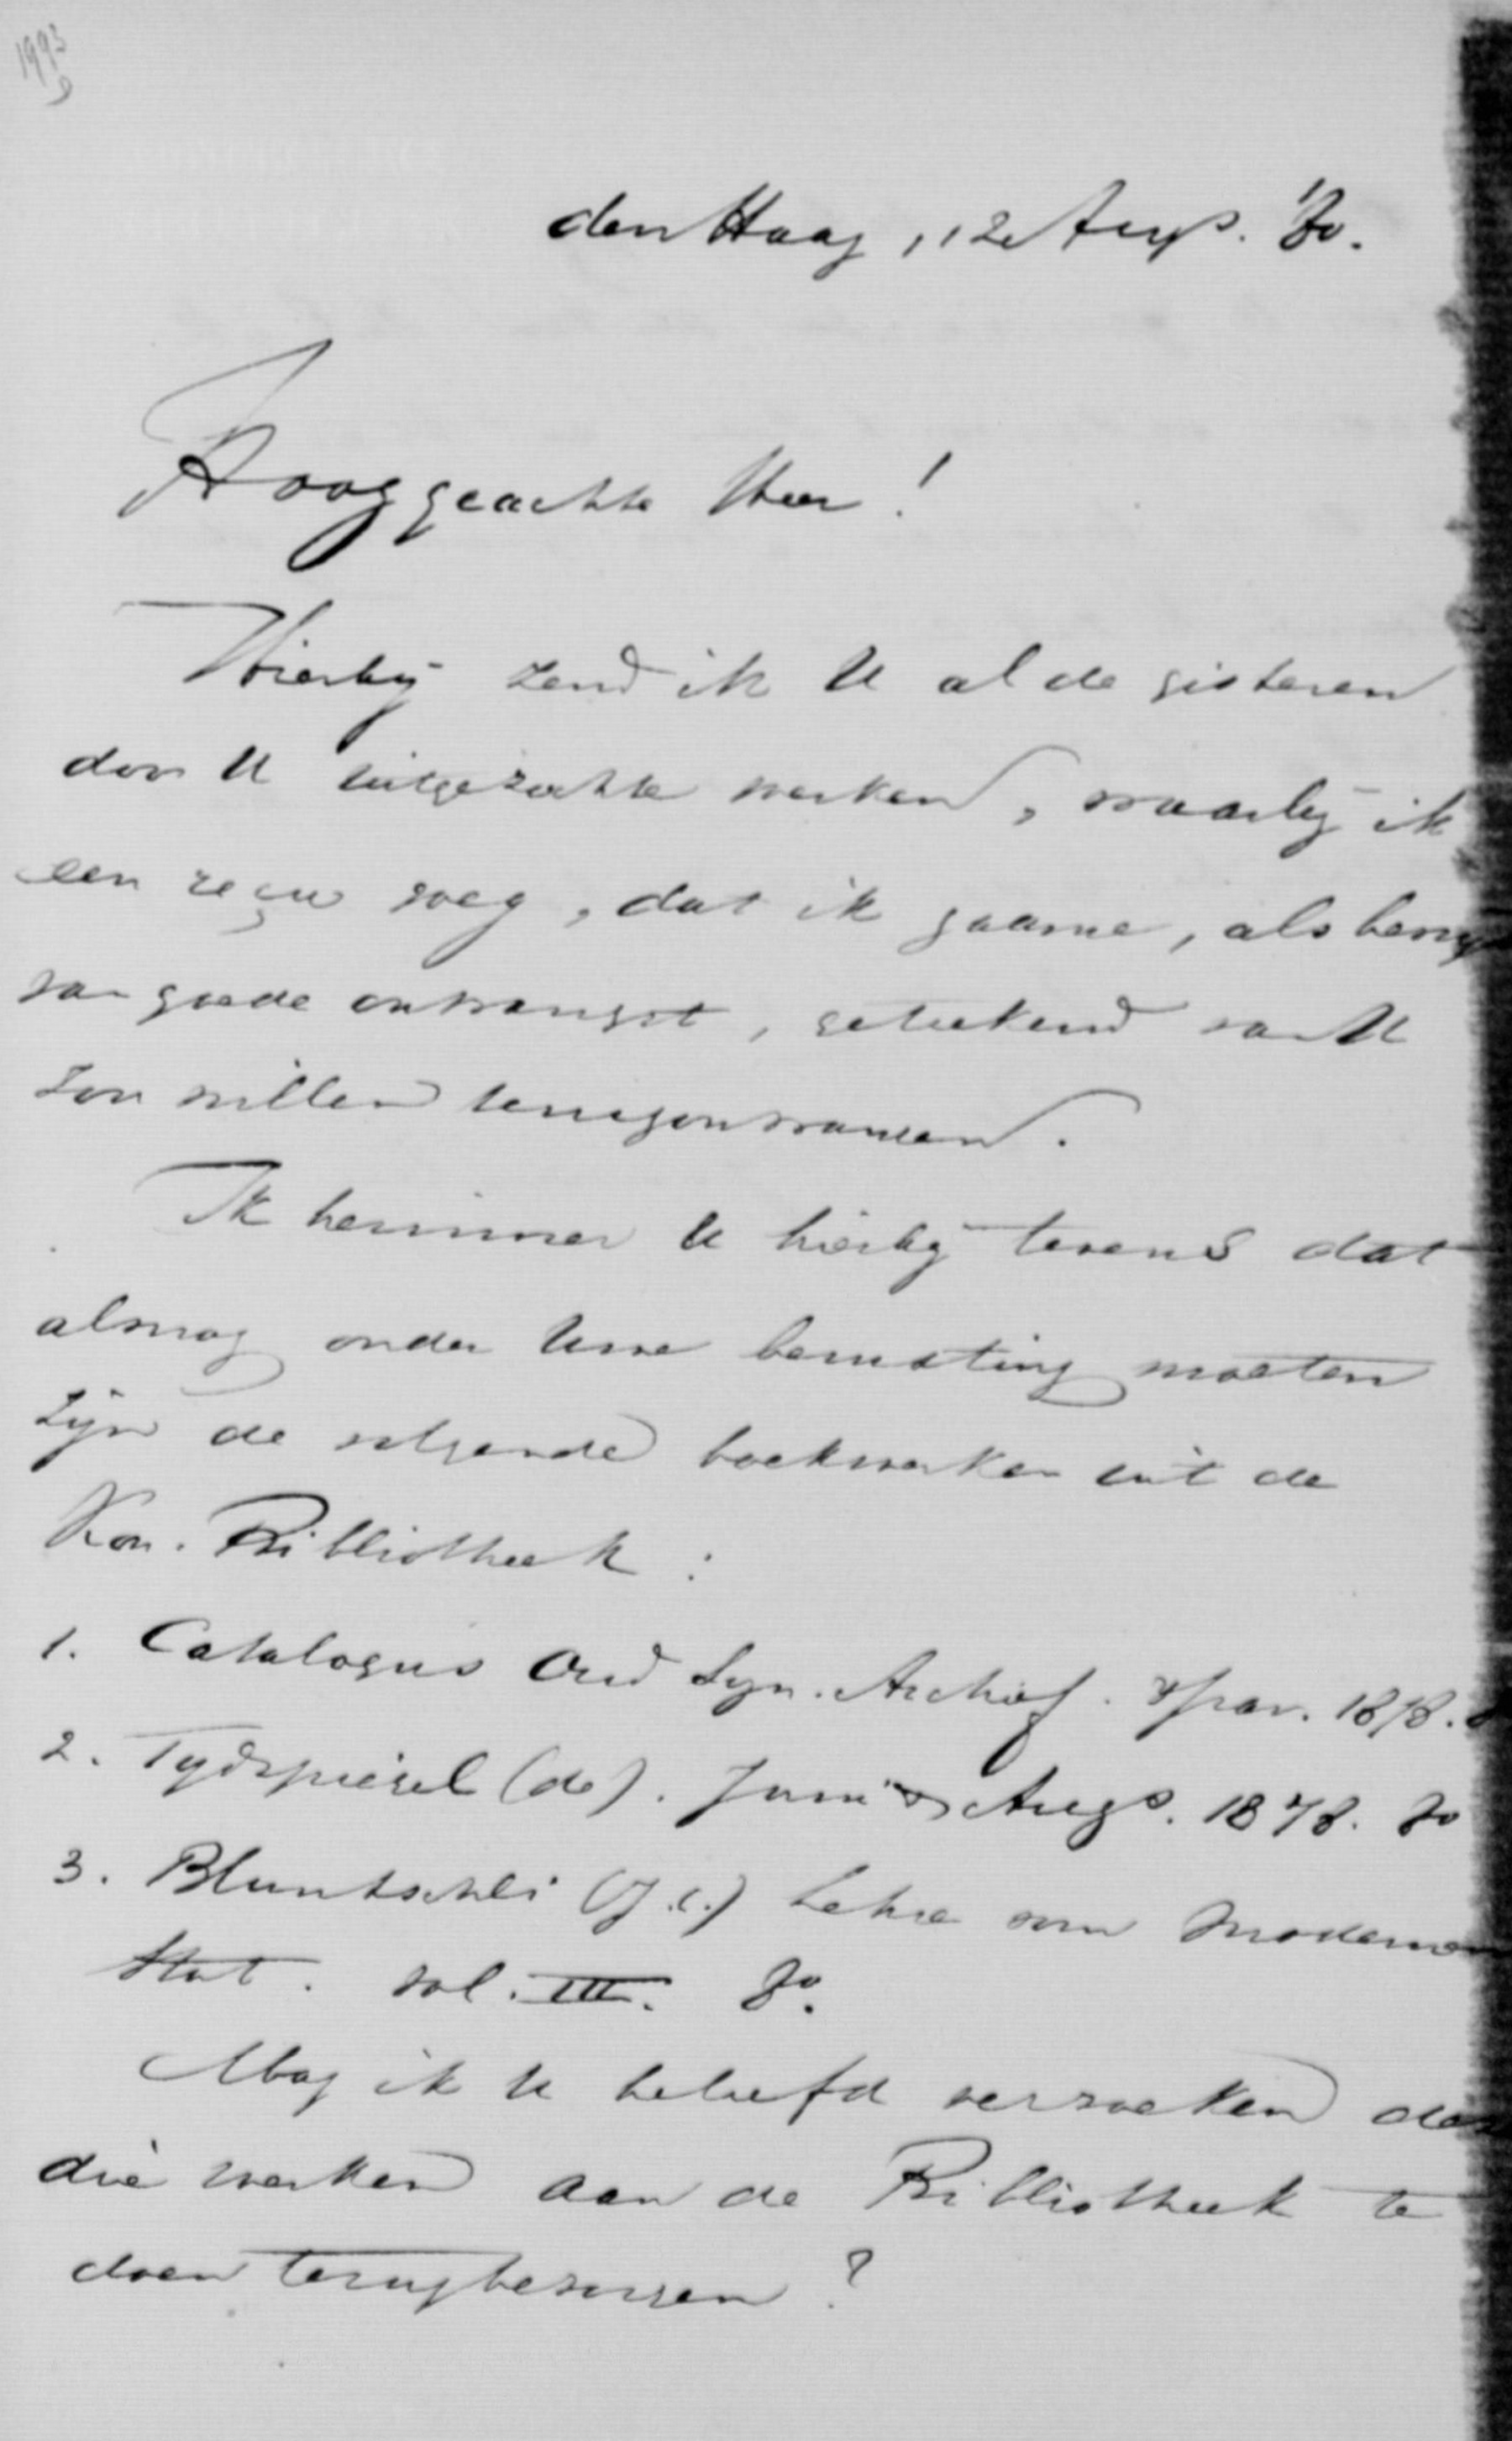 1993
den Haag, 12 Aug. '80.
Hooggeachte Heer!
Hierbij zend ik U al de gisteren
door U uitgezochte werken, waarbij ik
een reçu voeg, dat ik gaarne, als bewijs
van goede ontvangst, geteekend van U
zou willen terugontvangen.
Ik herinner U hierbij tevens dat
alsnog onder Uwe berusting moeten
zijn de volgende boekwerken uit de
Kon. Bibliotheek:
1. Catalogus Oud Syn. Archief. 'sGrav. 1878.
2. Tijdspiegel (de). Juni & Aug. 1878. 8o
3. Bluntschli (J.C.) Lehre vom Modernen
Stat. vol. III. 8o.
Mag ik U beleefd verzoeken
die werken aan de Bibliotheek te
doen terugbezorgen?